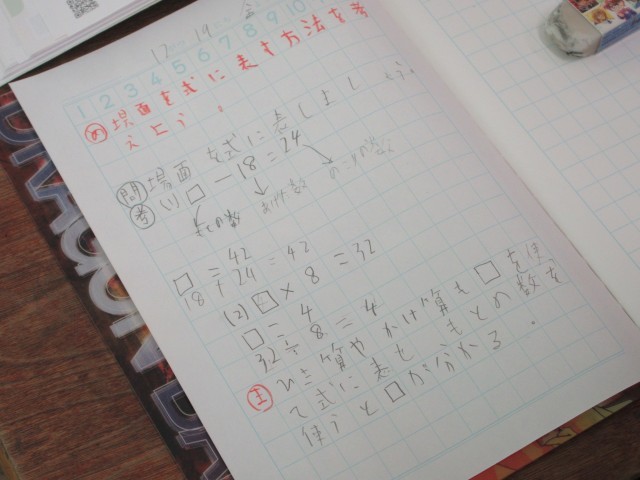 12 19 金
1 2 3 4 5 6 7 8 9 10
め 場面を式に表す方法を考
えよう。
問 場面を式に表しましょう。
考 (1) □-18=24
もとの数 あげた数 のこりの数
□=42
18+24=42
(2) □×8=32
□=4
32÷8=4
ま ひき算やかけ算も□を使っ
て式に表せ もとめ数を
使うと□が分かる.
DRAGON